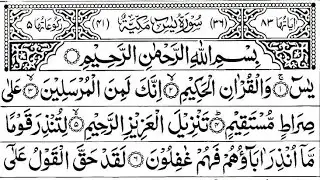 اٰیاتها ٨٣ (٣٦) سُوْرَةُ يٰسٓ مَكِّيَّةٌ (٤١) ركوعاتها ٥
بِسْمِ اللّٰهِ الرَّحْمٰنِ الرَّحِيْمِ
يٰسٓ ۝١ وَالْقُرْاٰنِ الْحَكِيْمِ ۝٢ اِنَّكَ لَمِنَ الْمُرْسَلِيْنَ ۝٣ عَلٰى
صِرَاطٍ مُّسْتَقِيْمٍ ۝٤ تَنْزِيْلَ الْعَزِيْزِ الرَّحِيْمِ ۝٥ لِتُنْذِرَ قَوْمًا
مَّاۤ اُنْذِرَ اٰبَآؤُهُمْ فَهُمْ غٰفِلُوْنَ ۝٦ لَقَدْ حَقَّ الْقَوْلُ عَلٰۤى